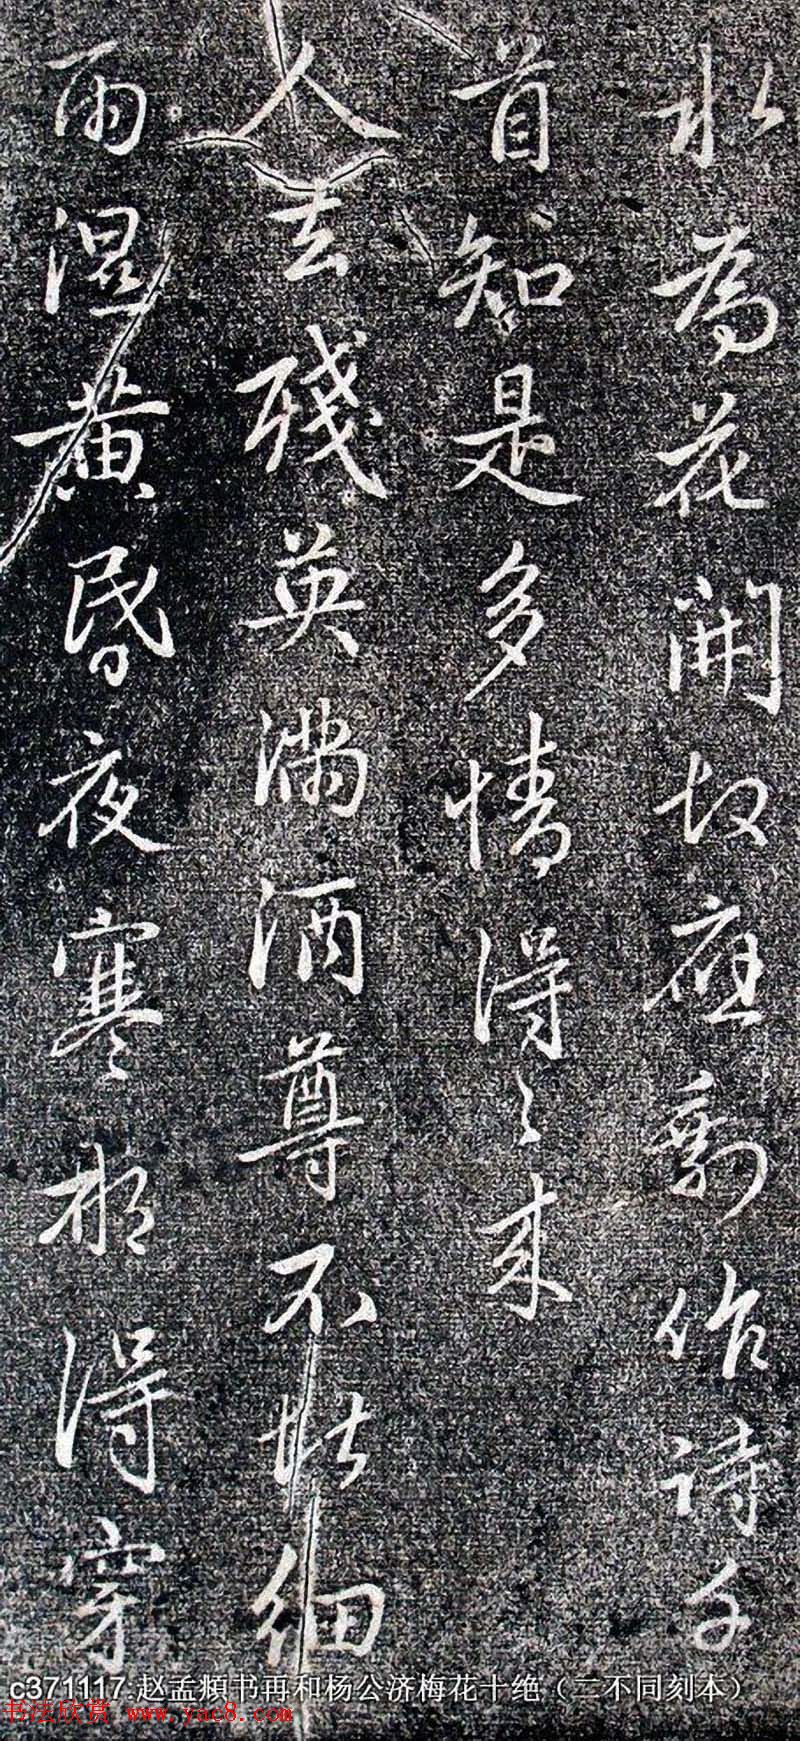 北為花開故應剩作詩千
首知是多情得〻来
人去殘英滿酒尊不堪細
雨濕黄昏夜寒那得穿
c371117.赵孟頫书再和杨公济梅花十绝（二不同刻本）
书法欣赏 www.yac8.com